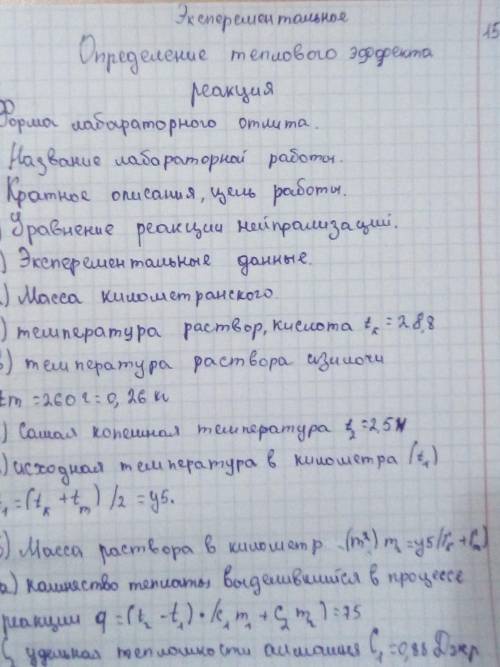 Эксперементальное
15
Определение теплового эффекта
реакция
Форма лабараторного отчита.
Название лабараторной работы.
Кратное описания, цель работы.
) Уравнение реакции нейтрализаций.
) Эксперементальные данные.
) Масса километранского
) температура раствор, кислота tк = 28,8
в) температура раствора
tm = 260 г = 0,26 кг
) Самая конешная температура t2 = 25
) исходная температура в километра (t1)
t1 = (tк + tm) / 2 = у5.
б) Масса раствора в километр
а) количество теплаты выделившийся в процессе
реакции q = (t2 - t1) • (c1 m1 + C2 m2) = 75
удельная C1 = 0,88